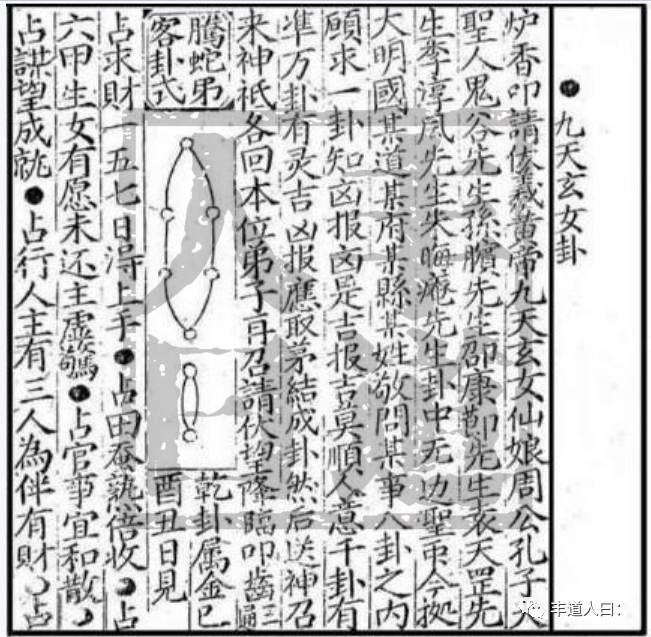 九天玄女卦
炉香叩請伏羲黄帝九天玄女仙娘周公孔子大
聖人鬼谷先生孫臏先生邵康節先生袁天罡先
生李淳風先生朱晦庵先生卦中无边聖今拠
大明國某道某府某縣某姓敬問某事八卦之内
願求一卦知凶报凶是吉报吉莫順人意千卦有
准万卦有灵吉凶报應取茅結成卦然后送神召
来神祇各回本位弟子再召請伏望降臨叩齒三遍
騰蛇弟
客卦式
乾卦属金巳
酉丑日見
占求財一五七日淂上手●占田蚕熟倍收●占
六甲生女有愿未还主虚驚●占官事宜和散●
占謀望成就●占行人主有三人為伴有財●占
丰道人曰：